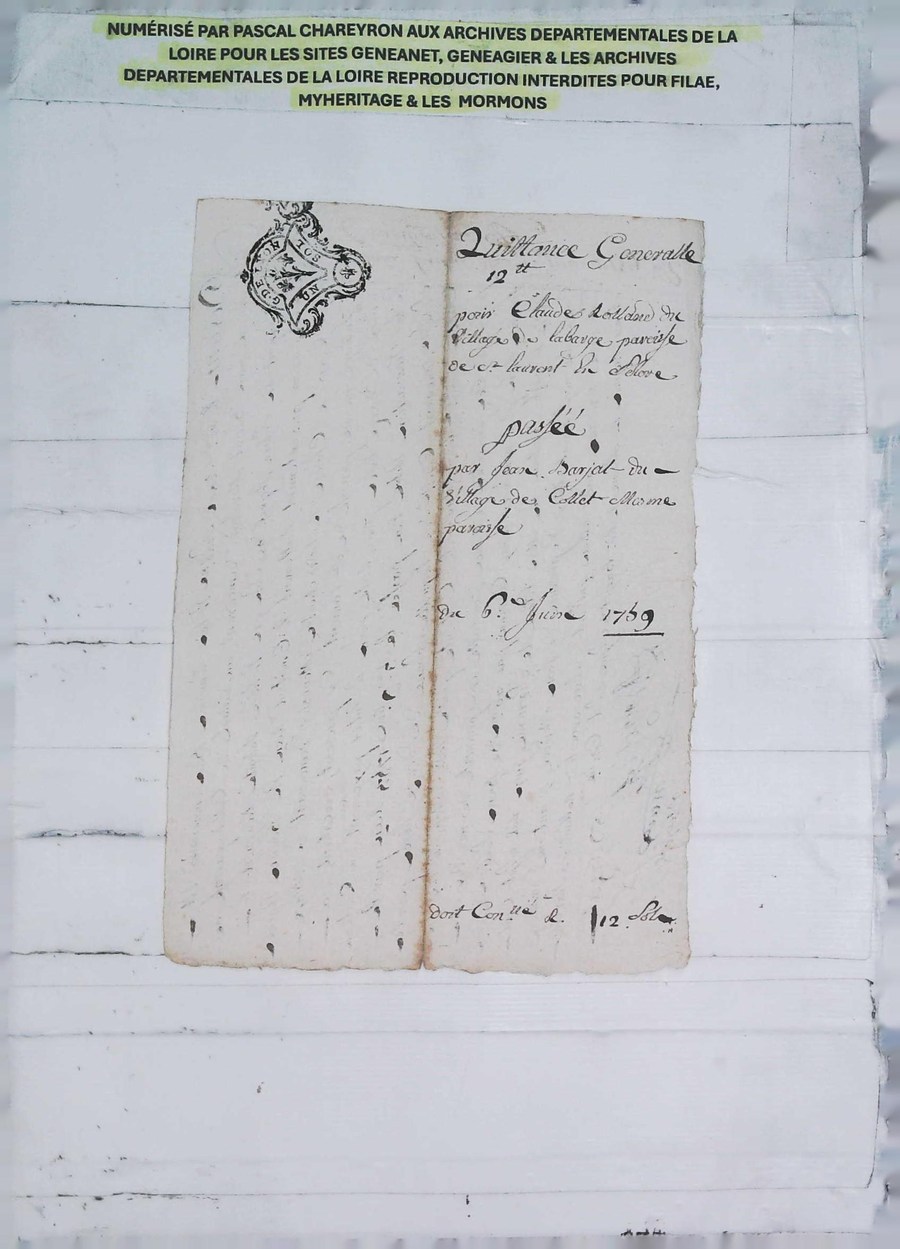 NUMÉRISÉ PAR PASCAL CHAREYRON AUX ARCHIVES DEPARTEMENTALES DE LA
LOIRE POUR LES SITES GENEANET, GENEAGIER & LES ARCHIVES
DEPARTEMENTALES DE LA LOIRE REPRODUCTION INTERDITES POUR FILAE,
MYHERITAGE & LES MORMONS
UN SOL
G. DE
Quittance Generalle
12tt
pour Claude Rolland du
village de labarge paroisse
de st laurent En
passéé
par Jean Barjat du
village de Collet Meme
paroisse
du 6e Juin 1759
doit Con.lle & 12 Sols